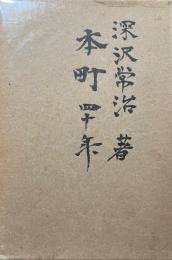 深沢常治 著
本町四十年